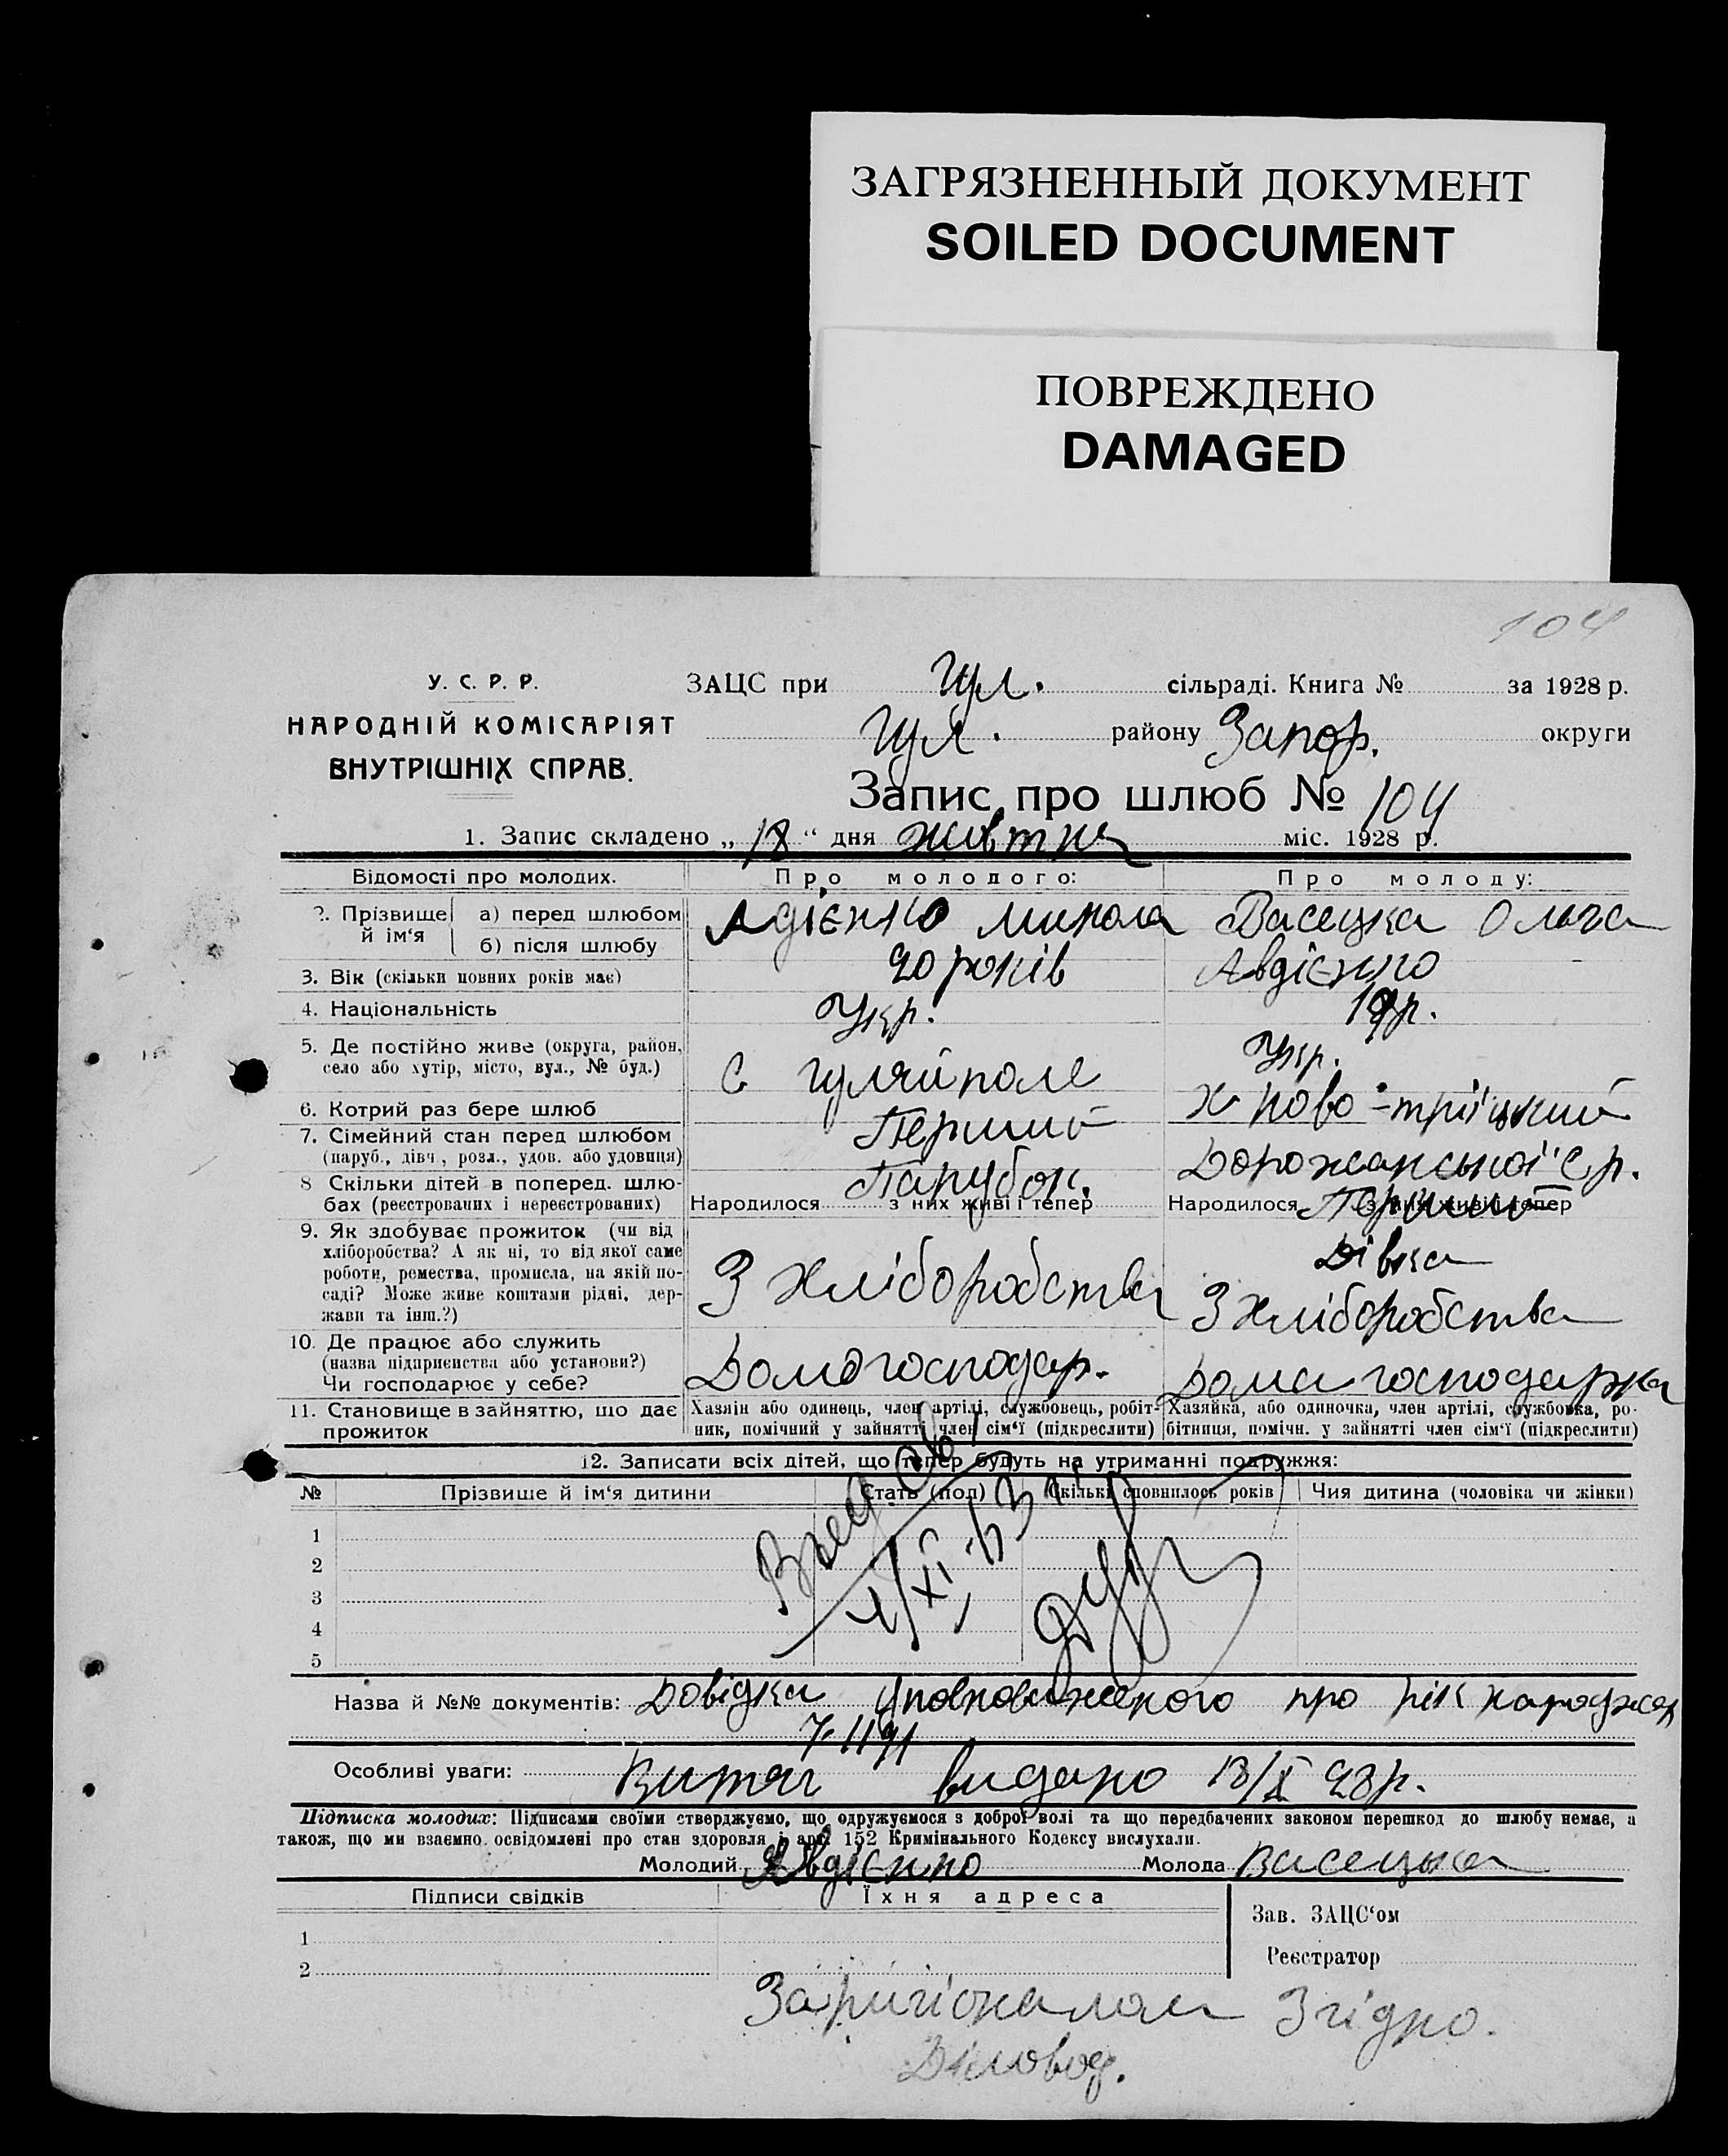 ЗАГРЯЗНЕННЫЙ ДОКУМЕНТ
SOILED DOCUMENT
ПОВРЕЖДЕНО
DAMAGED
104
У. С. Р. Р.
НАРОДНІЙ КОМІСАРІЯТ
ВНУТРІШНІХ СПРАВ.
ЗАЦС при Гул. сільраді. Книга № за 1928 р.
Гул. району Запор. округи
Запис про шлюб № 104
1. Запис складено „18“ дня жовтня міс. 1928 р.
Відомості про молодих. Про молодого: Про молоду:
2. Прізвище й ім‘я а) перед шлюбом Авдієнко Микола Васецка Ольга
б) після шлюбу Авдієнко
3. Вік (скільки повних років має) 20 років 19 р.
4. Національність Укр. Укр.
5. Де постійно живе (округа, район, село або хутір, місто, вул., № буд.) с Гуляйполе х Ново-троїцкий Дорожанської с р.
6. Котрий раз бере шлюб Перший Перший
7. Сімейний стан перед шлюбом (паруб., дівч., розл., удов. або удовиця) Парубок. Дівка
8 Скільки дітей в поперед. шлюбах (реєстрованих і нереєстрованих) Народилося з них живі і тепер Народилося з них живі і тепер
9. Як здобуває прожиток (чи від хліборобства? А як ні, то від якої саме роботи, ремества, промисла, на якій посаді? Може живе коштами рідні, держави та інш.?) З хліборобства З хліборобства
10. Де працює або служить (назва підприємства або установи?) Чи господарює у себе? Дома господар. Дома господарка
11. Становище в зайняттю, що дає прожиток Хазяїн або одинець, член артілі, службовець, робітник, помічний у зайнятті член сім‘ї (підкреслити) Хазяйка, або одиночка, член артілі, службовка, робітниця, помічн. у зайнятті член сім‘ї (підкреслити)
12. Записати всіх дітей, що тепер будуть на утриманні подружжя:
№ Прізвище й ім‘я дитини Стать (пол) Скільки сповнилось років Чия дитина (чоловіка чи жінки)
1
2
3
4
5
Назва й №№ документів: Довідка Уповноваженого про рік народжен
Особливі уваги: Витяг видано
Підписка молодих: Підписами своїми стверджуємо, що одружуємося з доброї волі та що передбачених законом перешкод до шлюбу немає, а
також, що ми взаємно освідомлені про стан здоровля і арт. 152 Кримінального Кодексу вислухали.
Молодий Авдієнко Молода Васецка
Підписи свідків Їхня адреса
Зав. ЗАЦС‘ом
1
Реєстратор
2
Згідно.
Діловод.